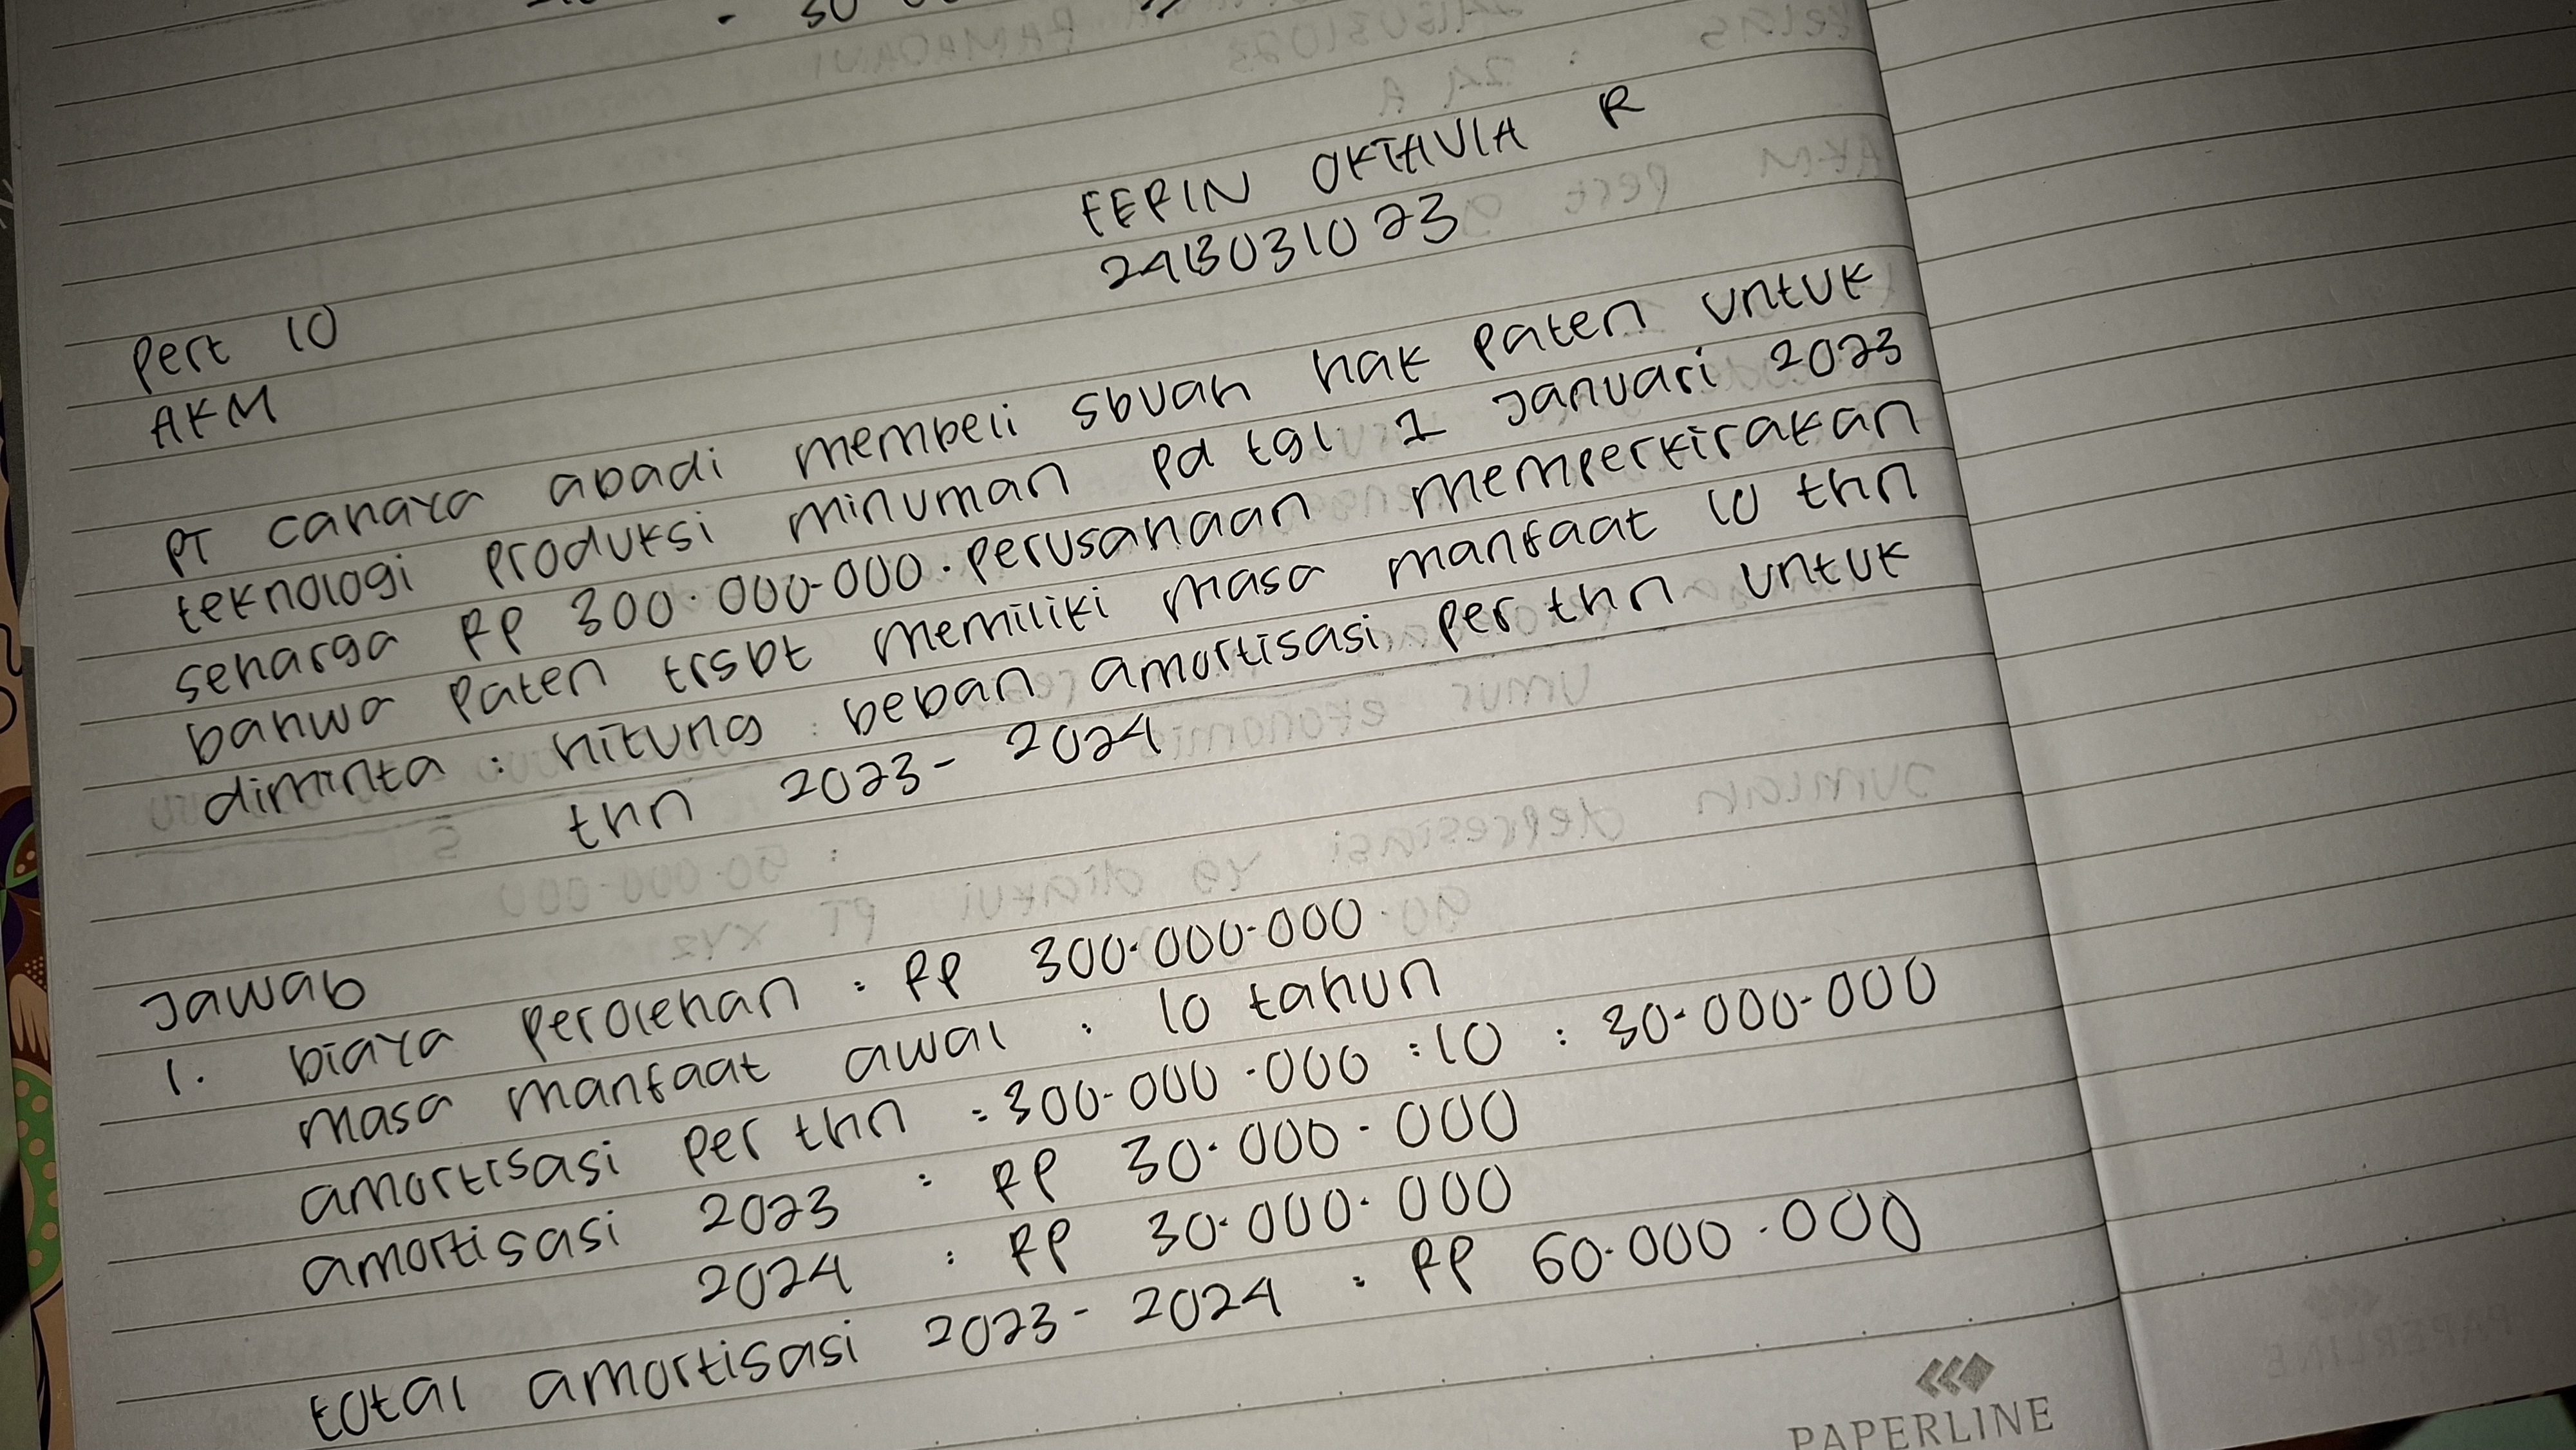 FERIN OKTAVIA R
2413031023
Pert 10
AKM
PT cahaya abadi membeli sbuah hak paten untuk
teknologi produksi minuman pd tgl 1 Januari 2023
seharga Rp 300.000.000. perusahaan memperkirakan
bahwa paten trsbt memiliki masa manfaat 10 thn
diminta : hitung beban amortisasi per thn untuk
thn 2023 - 2024
Jawab
1. biaya perolehan : Rp 300.000.000
masa manfaat awal : 10 tahun
amortisasi per thn : 300.000.000 : 10 : 30.000.000
amortisasi 2023 : Rp 30.000.000
2024 : Rp 30.000.000
total amortisasi 2023 - 2024 : Rp 60.000.000
PAPERLINE